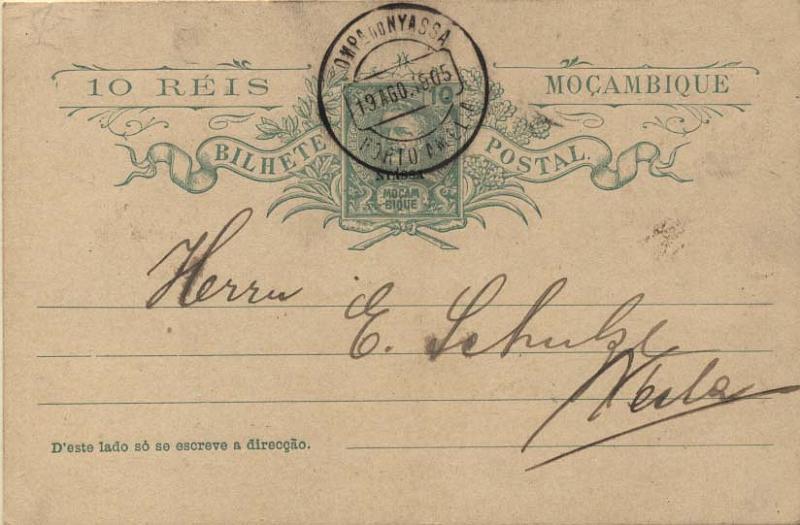 COMPA DO NYASSA
19 AGO. 1905
PORTO AMELIA
10 RÉIS
MOÇAMBIQUE
BILHETE POSTAL
10
NYASSA
MOÇAM
BIQUE
Herrn
E. Schulze
D'este lado só se escreve a direcção.